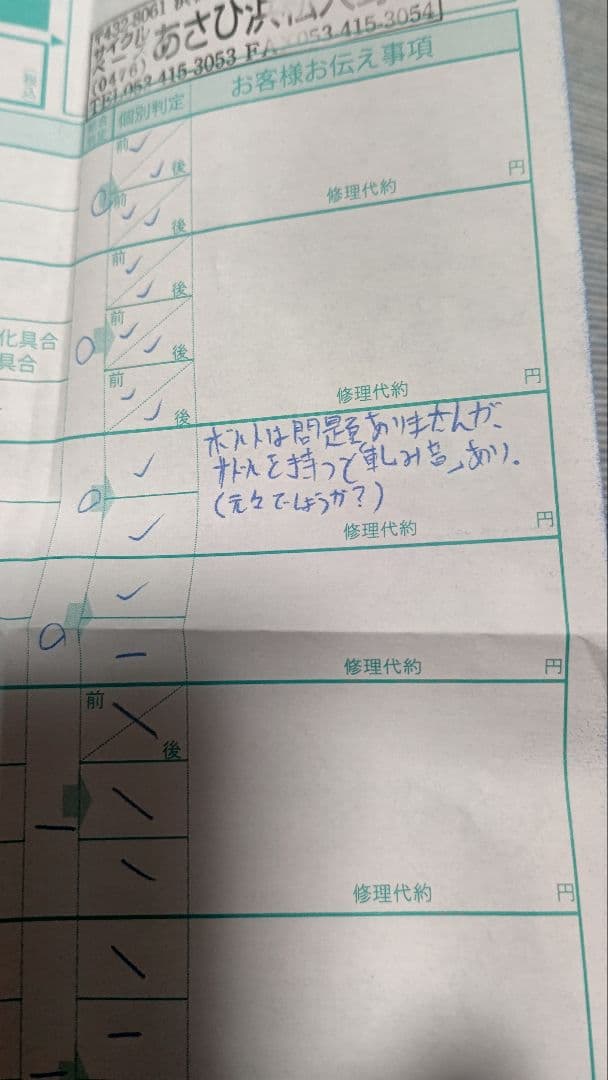 〒432-8061
サイクル
ベース
あさひ浜松
(0476)
TEL053-415-3053 FAX053-415-3054
税込
個別判定
お客様お伝え事項
前
後
前
後
修理代約 円
前
後
前
後
化具合
具合
前
後
修理代約 円
ボルトは問題ありませんが、
サドルを持って「軋み音」あり。
(元々でしょうか?)
修理代約 円
修理代約 円
前
後
修理代約 円